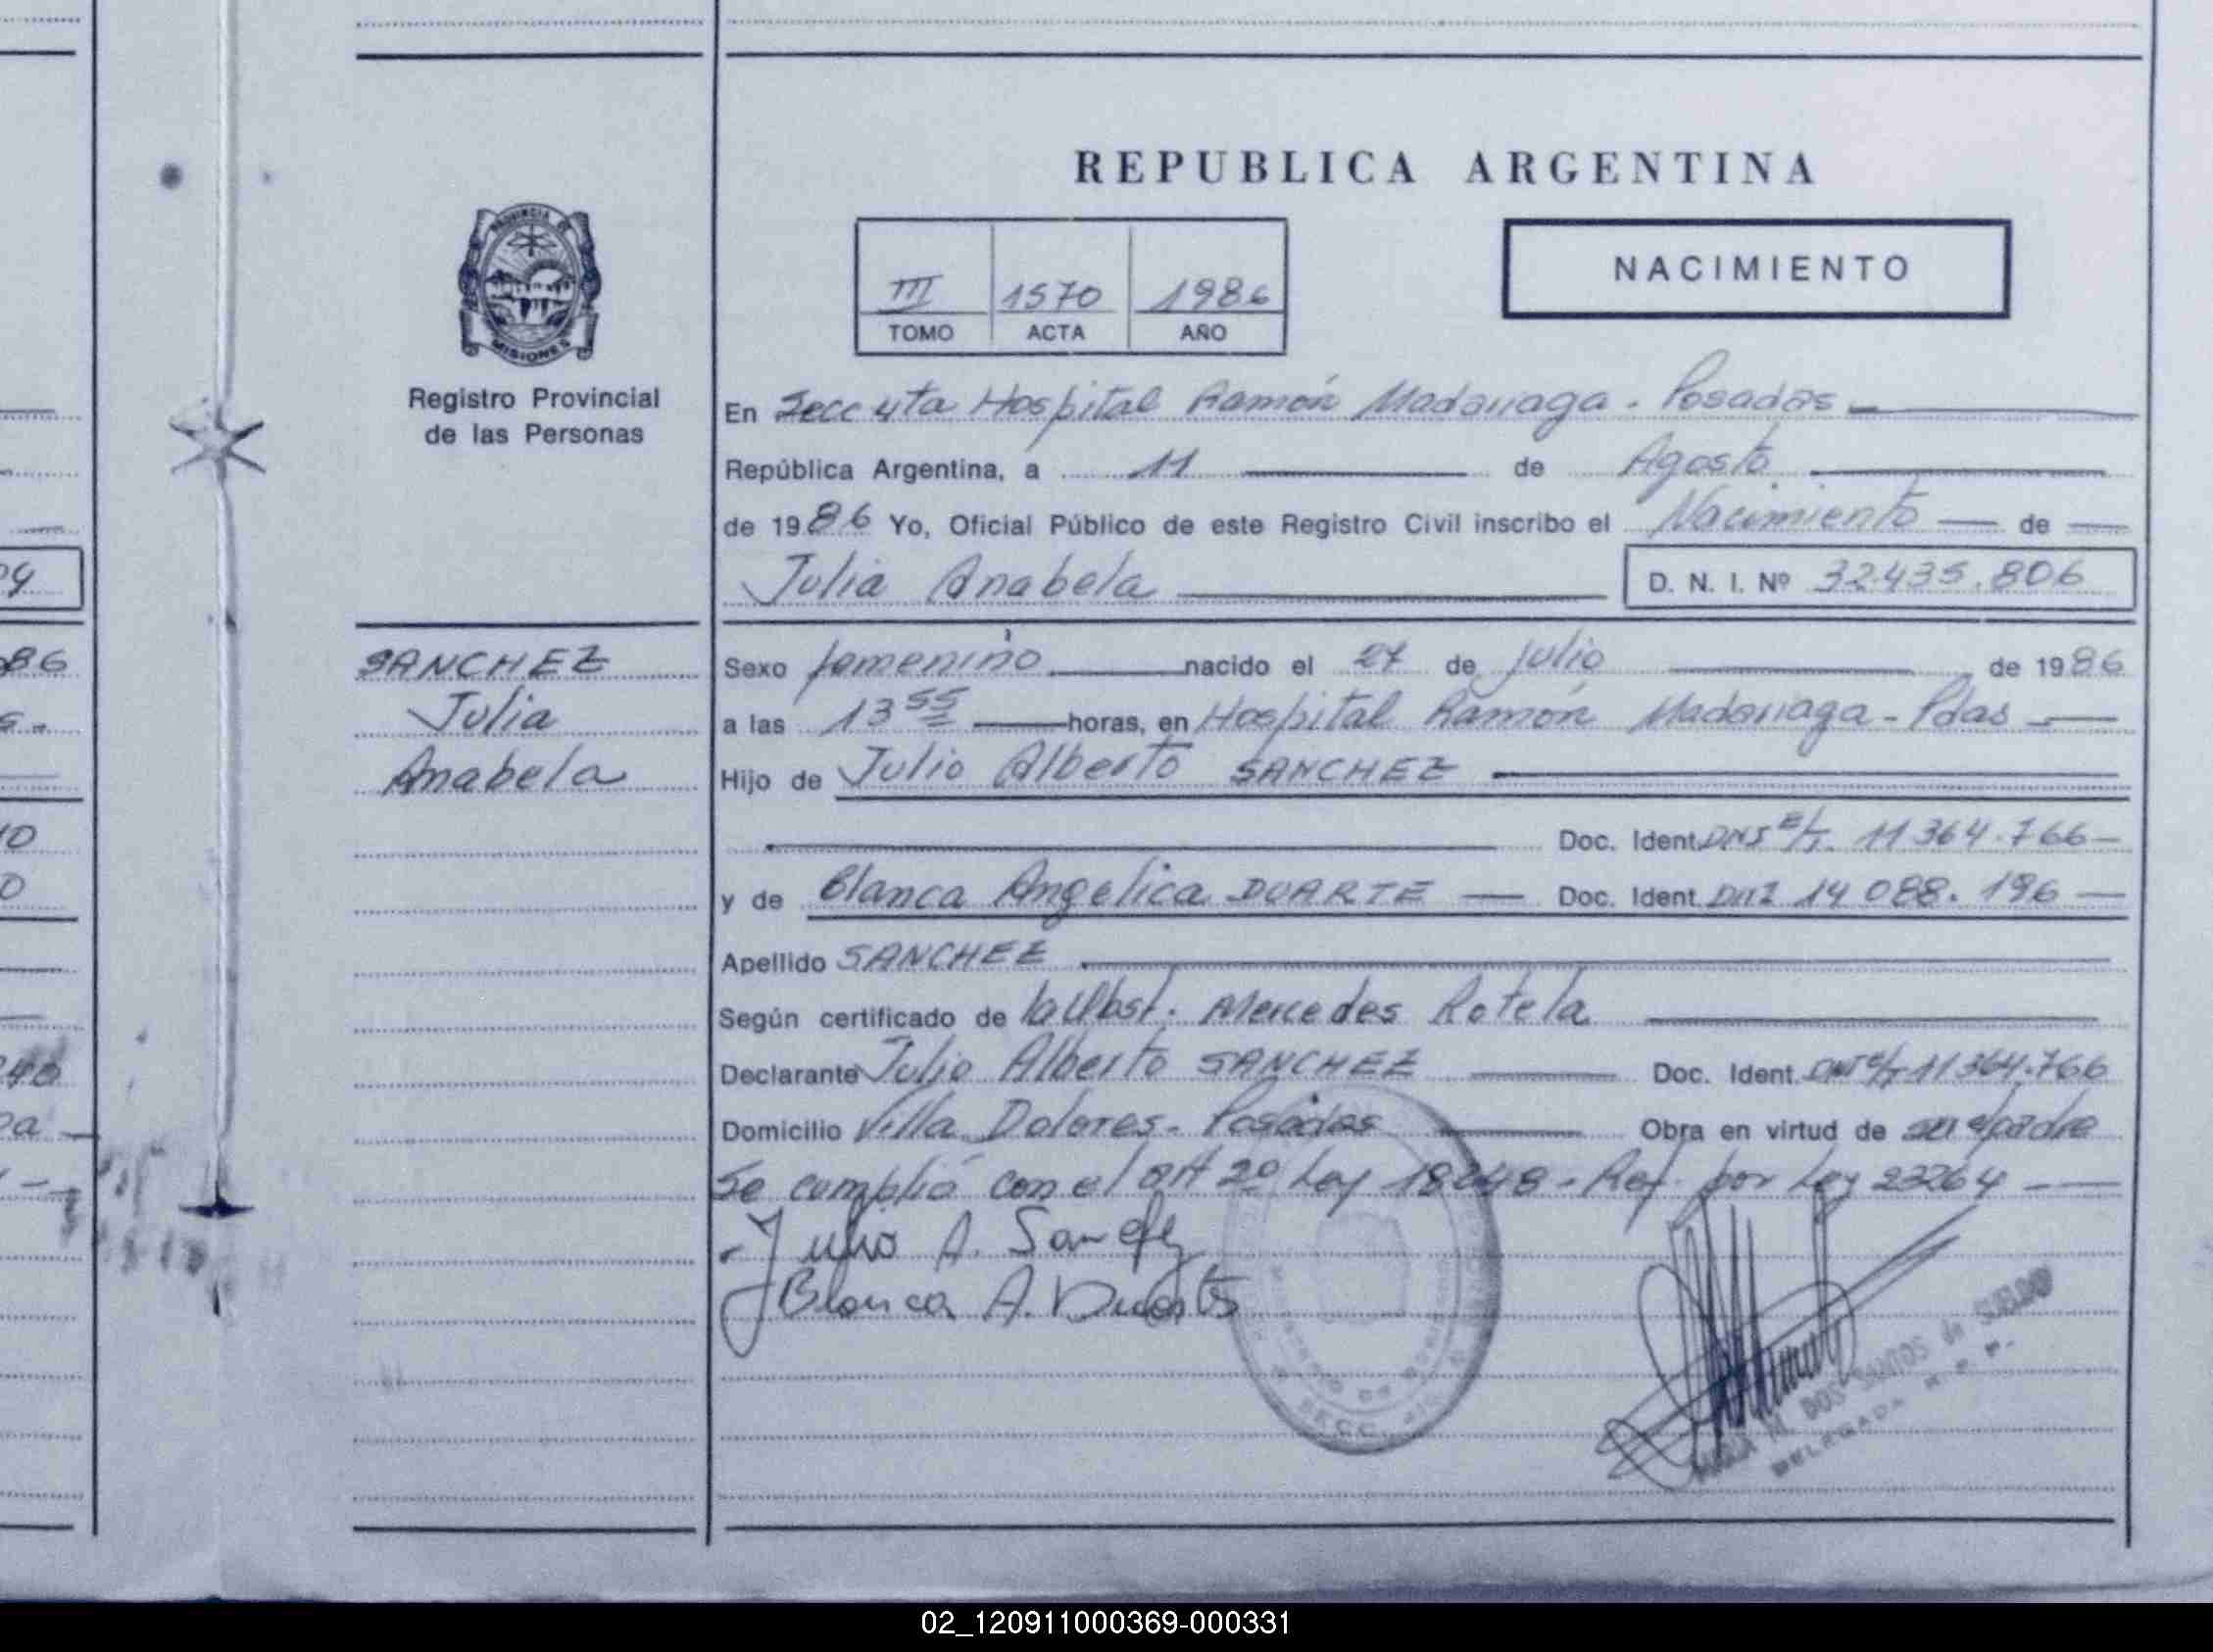 REPUBLICA ARGENTINA
PROVINCIA DE
MISIONES
Registro Provincial
de las Personas
III 1570 1986
TOMO ACTA AÑO
NACIMIENTO
En Secc 4ta Hospital Ramón Madariaga - Posadas
República Argentina, a 11 de Agosto
de 1986 Yo, Oficial Público de este Registro Civil inscribo el Nacimiento de
Julia Anabela
D. N. I. Nº 32.435.806
SANCHEZ
Julia
Anabela
Sexo femenino nacido el 27 de julio de 1986
a las 13 55 horas, en Hospital Ramón Madariaga - Pdas
Hijo de Julio Alberto SANCHEZ
Doc. Ident. DNI E/T. 11364.766
y de Blanca Angelica DUARTE Doc. Ident. DNI 14 088.196
Apellido SANCHEZ
Según certificado de la Obst. Mercedes Rotela
Declarante Julio Alberto SANCHEZ Doc. Ident. DNI E/T 11364.766
Domicilio Villa Dolores - Posadas Obra en virtud de ser padre
Se cumplió con el art 2º Ley 18248 - Ref. por Ley 23264
Julio A. Sanchez
Blanca A. Duarte
M. DOS SANTOS de
DELEGADA
86
02_120911000369-000331